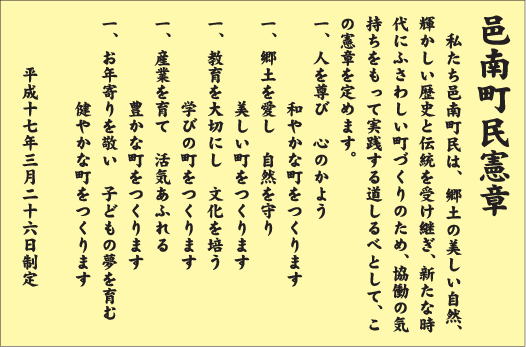 邑南町民憲章
私たち邑南町民は、郷土の美しい自然、
輝かしい歴史と伝統を受け継ぎ、新たな時
代にふさわしい町づくりのため、協働の気
持ちをもって実践する道しるべとして、こ
の憲章を定めます。
一、人を尊び 心のかよう
和やかな町をつくります
一、郷土を愛し 自然を守り
美しい町をつくります
一、教育を大切にし 文化を培う
学びの町をつくります
一、産業を育て 活気あふれる
豊かな町をつくります
一、お年寄りを敬い 子どもの夢を育む
健やかな町をつくります
平成十七年三月二十六日制定